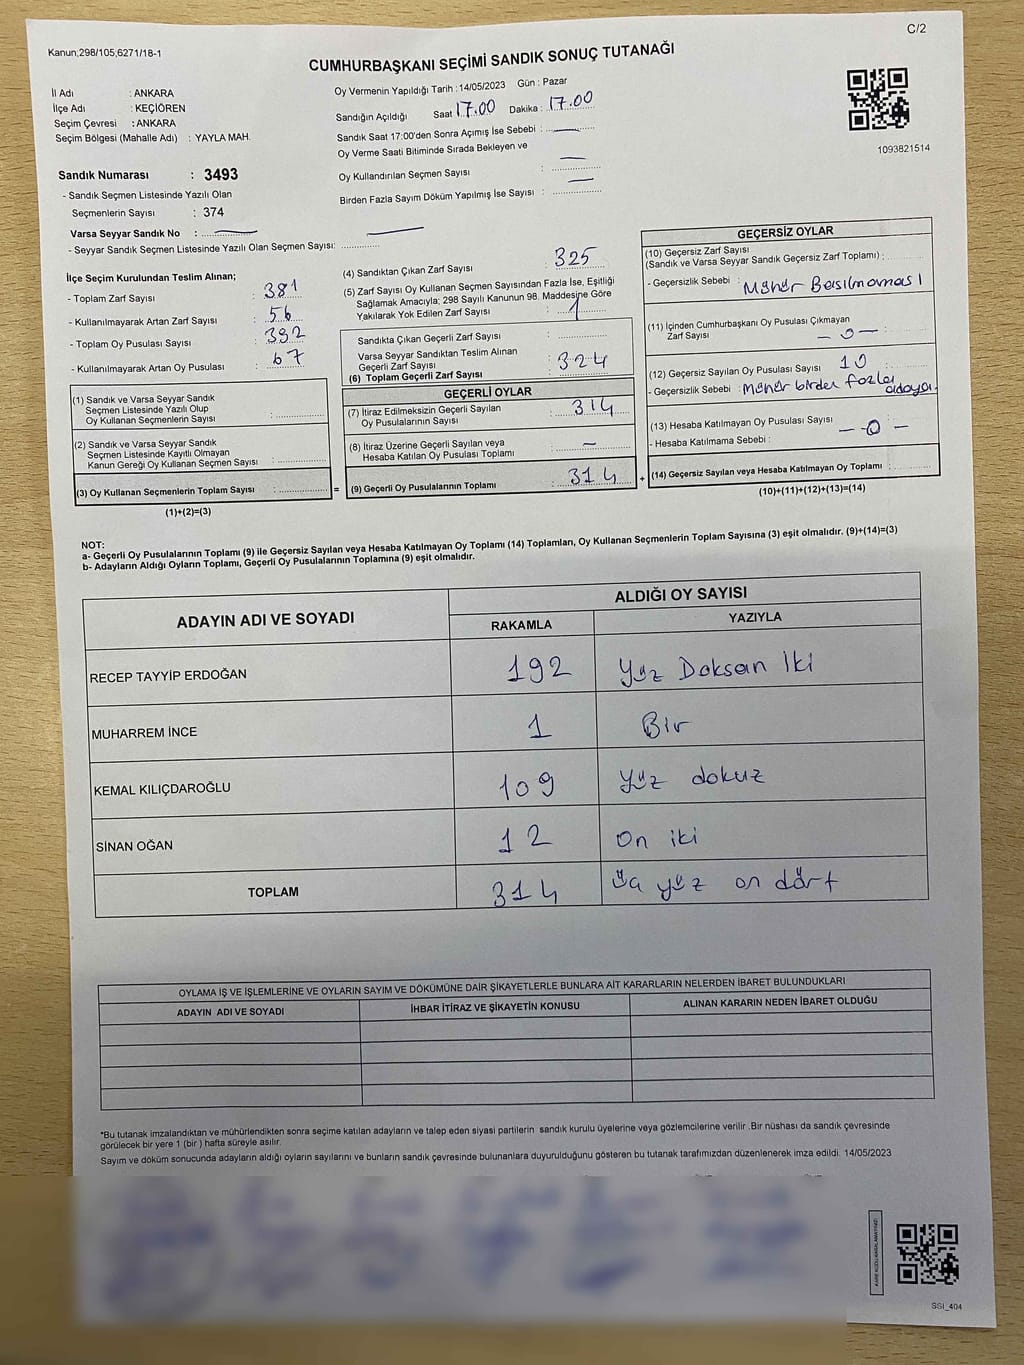 C/2
Kanun,298/105,6271/18-1
CUMHURBAŞKANI SEÇİMİ SANDIK SONUÇ TUTANAĞI
İl Adı : ANKARA
İlçe Adı : KEÇİÖREN
Seçim Çevresi : ANKARA
Seçim Bölgesi (Mahalle Adı) : YAYLA MAH.
Oy Vermenin Yapıldığı Tarih : 14/05/2023 Gün : Pazar
Sandığın Açıldığı Saat 17.00 Dakika : 17.00
Sandık Saat 17:00'den Sonra Açımış İse Sebebi : —
Oy Verme Saati Bitiminde Sırada Bekleyen ve
Oy Kullandırılan Seçmen Sayısı : —
Birden Fazla Sayım Döküm Yapılmış İse Sayısı : —
1093821514
Sandık Numarası : 3493
- Sandık Seçmen Listesinde Yazılı Olan
Seçmenlerin Sayısı : 374
Varsa Seyyar Sandık No : —
- Seyyar Sandık Seçmen Listesinde Yazılı Olan Seçmen Sayısı: —
İlçe Seçim Kurulundan Teslim Alınan;
- Toplam Zarf Sayısı : 381
- Kullanılmayarak Artan Zarf Sayısı : 56
- Toplam Oy Pusulası Sayısı : 392
- Kullanılmayarak Artan Oy Pusulası : 67
(1) Sandık ve Varsa Seyyar Sandık
Seçmen Listesinde Yazılı Olup
Oy Kullanan Seçmenlerin Sayısı :
(2) Sandık ve Varsa Seyyar Sandık
Seçmen Listesinde Kayıtlı Olmayan
Kanun Gereği Oy Kullanan Seçmen Sayısı :
(3) Oy Kullanan Seçmenlerin Toplam Sayısı : =
(1)+(2)=(3)
(4) Sandıktan Çıkan Zarf Sayısı : 325
(5) Zarf Sayısı Oy Kullanan Seçmen Sayısından Fazla İse, Eşitliği
Sağlamak Amacıyla; 298 Sayılı Kanunun 98. Maddesine Göre
Yakılarak Yok Edilen Zarf Sayısı : 1
Sandıkta Çıkan Geçerli Zarf Sayısı :
Varsa Seyyar Sandıktan Teslim Alınan
Geçerli Zarf Sayısı : 324
(6) Toplam Geçerli Zarf Sayısı
GEÇERLİ OYLAR
(7) İtiraz Edilmeksizin Geçerli Sayılan
Oy Pusulasının Sayısı : 314
(8) İtiraz Üzerine Geçerli Sayılan veya
Hesaba Katılan Oy Pusulası Toplamı : —
(9) Geçerli Oy Pusulalarının Toplamı : 314 +
GEÇERSİZ OYLAR
(10) Geçersiz Zarf Sayısı
(Sandık ve Varsa Seyyar Sandık Geçersiz Zarf Toplamı) :
- Geçersizlik Sebebi : Mühür Basılmaması
(11) İçinden Cumhurbaşkanı Oy Pusulası Çıkmayan
Zarf Sayısı — 0 —
(12) Geçersiz Sayılan Oy Pusulası Sayısı : 10
- Geçersizlik Sebebi : Mühür birden fazla adaya.
(13) Hesaba Katılmayan Oy Pusulası Sayısı — 0 —
- Hesaba Katılmama Sebebi :
(14) Geçersiz Sayılan veya Hesaba Katılmayan Oy Toplamı :
(10)+(11)+(12)+(13)=(14)
NOT:
a- Geçerli Oy Pusulalarının Toplamı (9) ile Geçersiz Sayılan veya Hesaba Katılmayan Oy Toplamı (14) Toplamları, Oy Kullanan Seçmenlerin Toplam Sayısına (3) eşit olmalıdır. (9)+(14)=(3)
b- Adayların Aldığı Oyların Toplamı, Geçerli Oy Pusulalarının Toplamına (9) eşit olmalıdır.
ADAYIN ADI VE SOYADI
ALDIĞI OY SAYISI
RAKAMLA YAZIYLA
RECEP TAYYİP ERDOĞAN 192 Yüz Doksan İki
MUHARREM İNCE 1 Bir
KEMAL KILIÇDAROĞLU 109 Yüz dokuz
SİNAN OĞAN 12 On iki
TOPLAM 314 Üç yüz on dört
OYLAMA İŞ VE İŞLEMLERİNE VE OYLARIN SAYIM VE DÖKÜMÜNE DAİR ŞİKAYETLERLE BUNLARA AİT KARARLARIN NELERDEN İBARET BULUNDUKLARI
ADAYIN ADI VE SOYADI İHBAR İTİRAZ VE ŞİKAYETİN KONUSU ALINAN KARARIN NEDEN İBARET OLDUĞU
*Bu tutanak imzalandıktan ve mühürlendikten sonra seçime katılan adayların ve talep eden siyasi partilerin sandık kurulu üyelerine veya gözlemcilerine verilir .Bir nüshası da sandık çevresinde
görülecek bir yere 1 (bir ) hafta süreyle asılır.
Sayım ve döküm sonucunda adayların aldığı oyların sayılarını ve bunların sandık çevresinde bulunanlara duyurulduğunu gösteren bu tutanak tarafımızdan düzenlenerek imza edildi. 14/05/2023
SSI_404